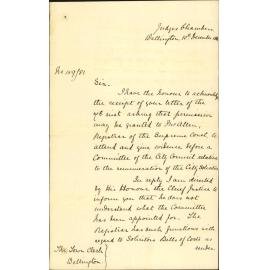 Judges Chambers
Wellington, 10th December
No 109/81
Sir,
I have the honour to acknowledge
the receipt of your letter of the
inst asking that permission
may be granted to Mr Allen,
Registrar of the Supreme Court, to
attend and give evidence before a
Committee of the City Council relative
to the remuneration of the City Solicitor
In reply I am directed
by His Honour the Chief Justice to
inform you that he does not
understand what the Committee
has been appointed for. The
Registrar has such functions with
regard to Solicitors Bills of Costs as
under
The Town Clerk
Wellington